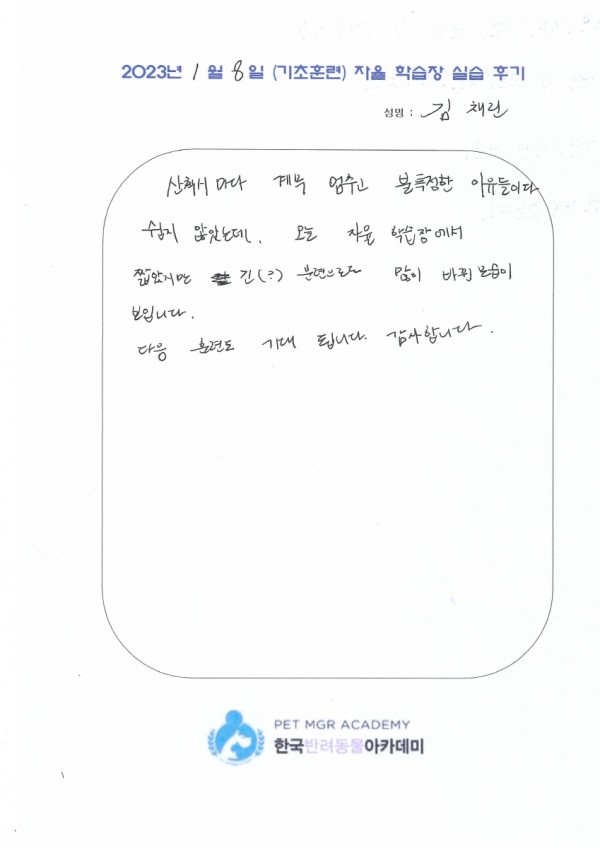 2023년 1월 8일 (기초훈련) 자율 학습장 실습 후기
성명 : 김채린
산책시 마다 계속 멈추고 불특정한 이유들이다
쉽지 않았는데, 오늘 자율 학습장에서
짧았지만 긴(?) 훈련으로 많이 바뀐 모습이
보입니다.
다음 훈련도 기대 됩니다. 감사합니다.
PET MGR ACADEMY
한국반려동물아카데미